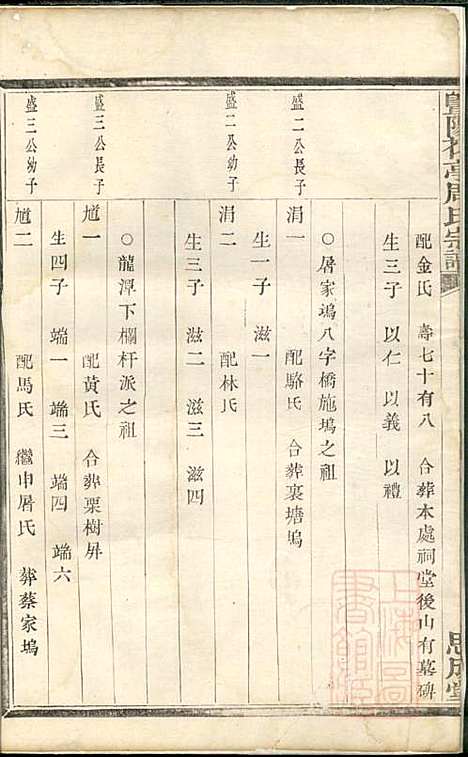 暨陽花亭周氏宗譜
思成堂
配金氏 壽七十有八 合葬本處祠堂後山有墓碑
生三子 以仁 以義 以禮
○屠家塢八字橋施塢之祖
盛二公長子
涓一 配駱氏 合葬裏塘塢
生一子 滋一
盛二公幼子
涓二 配林氏
生三子 滋二 滋三 滋四
○龍潭下欄杆派之祖
盛三公長子
馗一 配黃氏 合葬栗樹屏
生四子 端一 端三 端四 端六
盛三公幼子
馗二 配馬氏 繼申屠氏 葬蔡家塢
上海圖書館藏